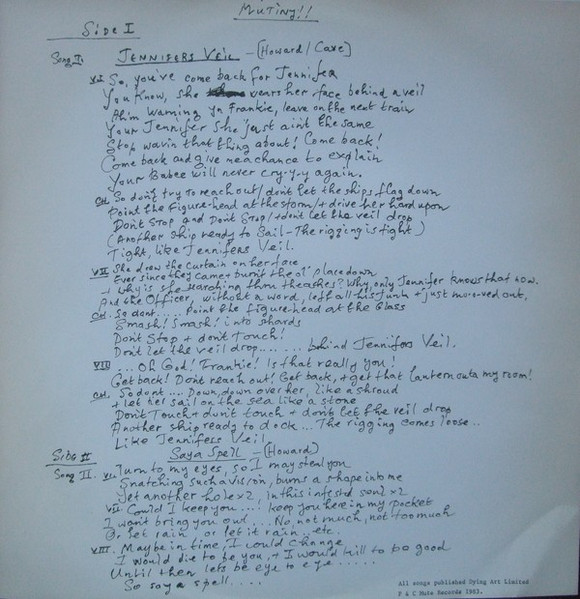 MUTINY!!
Side I
Song I. JENNIFERS VEIL - (Howard / Cave)
VI. So, you've come back for Jennifer
You know, she wears her face behind a veil
Ah'm warning yn Frankie, leave on the next train
Your Jennifer she just aint the same
Stop wavin that thing about! Come back!
Come back and give me a chance to explain
Your Babee will never cry-y-y again.
CH. So don't try to reach out / don't let the ships flag down
Point the figure-head at the storm / + drive her hard upon
Don't Stop and Don't Stop / + don't let the veil drop
(Another Ship ready to Sail - The rigging is tight)
Tight, like Jennifers Veil.
VII She drew the curtain on her face
Ever since they came + burnt the ol' place down
+ why is she searching thru the ashes? Why, only Jennifer knows that now.
And the Officer, without a word, left all his junk + just moo-ved out.
CH. So dont..... Point the figurehead at the Glass
Smash! Smash! into shards
Dont Stop + don't Touch!
Dont let the veil drop....... behind Jennifers Veil.
VIII ... Oh God! Frankie! Is that really you!
Get back! Dont reach out! Get back, + get that lantern outa my room!
CH. So dont.... Down, down over her, like a shroud
+ let her sail on the sea like a stone
Don't Touch + dun't touch + dont let the veil drop
Another ship ready to dock... The rigging comes loose..
Like Jennifers Veil
Side II
Saya Spell - (Howard)
Song II. VI. Turn to my eyes, so I may steal you
Snatching such a vision, burns a shape into me
Yet another hole x2, in this infested soul x2
VII. Could I keep you....! keep you here in my pocket
I want bring you out.... No, not much, not too much
Or let rain, or let it rain.. etc.
VIII. Maybe in time, I could change
I would die to be you, + I would kill to be good
Until then lets be eye to eye.....
So saya spell.....
All songs published Dying Art Limited
P & C Mute Records 1983.